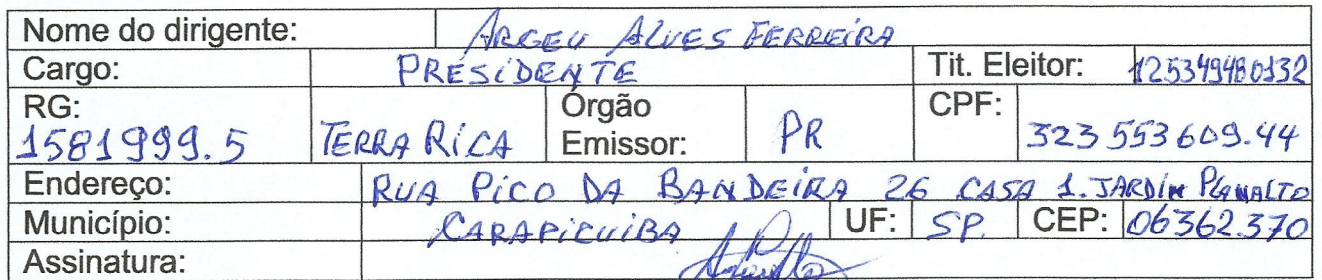 Nome do dirigente: ARGEU ALVES FERREIRA
Cargo: PRESIDENTE Tit. Eleitor: 125349480132
RG: 1581999.5 TERRA RICA Órgão Emissor: PR CPF: 323 553 609.44
Endereço: RUA PICO DA BANDEIRA 26 CASA 1. JARDIM PLANALTO
Município: CARAPICUIBA UF: SP. CEP: 06362.370
Assinatura: